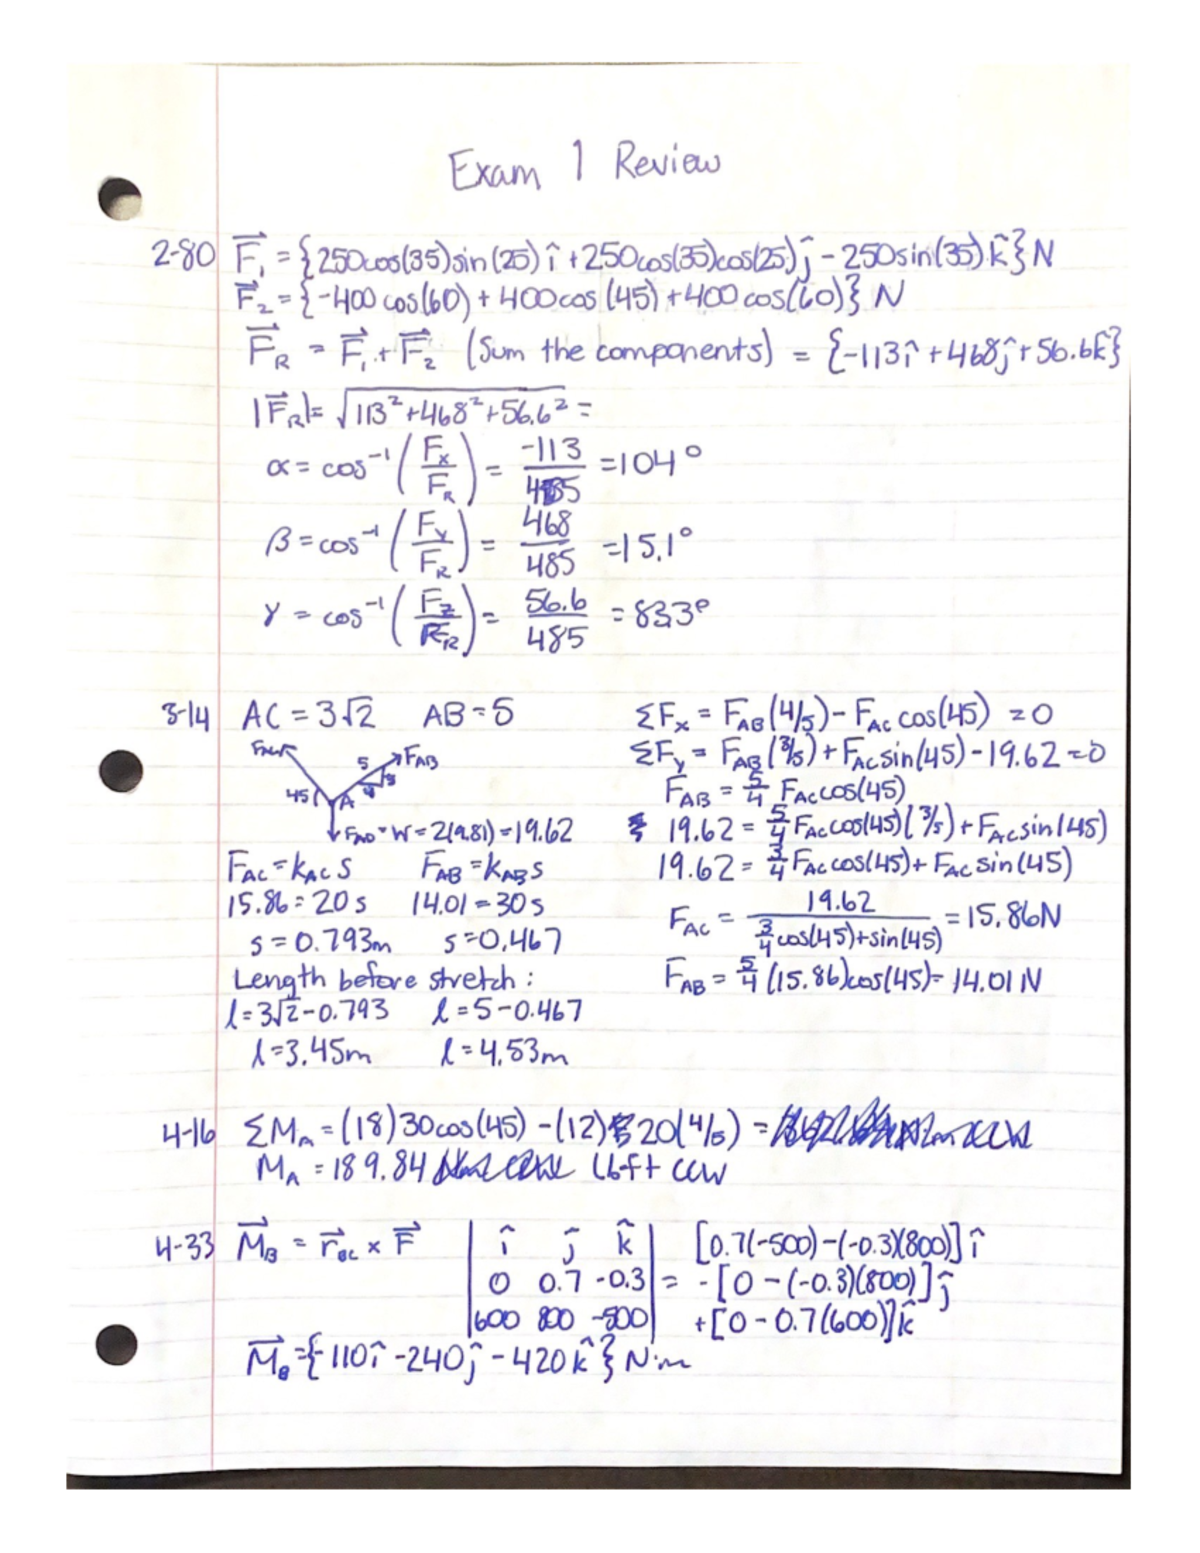 Exam 1 Review
2-80 F⃗₁ = {250cos(35)sin(25) î + 250cos(35)cos(25) ĵ - 250sin(35) k̂} N
F⃗₂ = {-400 cos(60) + 400 cos (45) + 400 cos(60)} N
F⃗_R = F⃗₁ + F⃗₂ (Sum the components) = {-113î + 468ĵ + 56.6k̂}
|F⃗_R| = √113² + 468² + 56.6² =
α = cos⁻¹ (F_x/F_R) = -113/485 = 104°
β = cos⁻¹ (F_y/F_R) = 468/485 = 15.1°
γ = cos⁻¹ (F_z/F_R) = 56.6/485 = 83.3°
3-14 AC = 3√2 AB = 5
F_AC 5 F_AB
3
4
45 A
F_AD = W = 2(9.81) = 19.62
F_AC = k_AC s F_AB = k_AB s
15.86 = 20 s 14.01 = 30 s
s = 0.793m s = 0.467
Length before stretch:
l = 3√2 - 0.793 l = 5 - 0.467
l = 3.45m l = 4.53m
ΣF_x = F_AB (4/5) - F_AC cos(45) = 0
ΣF_y = F_AB (3/5) + F_AC sin(45) - 19.62 = 0
F_AB = 5/4 F_AC cos(45)
19.62 = 5/4 F_AC cos(45)(3/5) + F_AC sin(45)
19.62 = 3/4 F_AC cos(45) + F_AC sin(45)
F_AC = 19.62/(3/4 cos(45) + sin(45)) = 15.86N
F_AB = 5/4 (15.86)cos(45) = 14.01 N
4-16 ΣM_A = (18)30cos(45) - (12) 20(4/5) =
M_A = 189.84 lb·ft ccw
4-33 M⃗_B = r⃗_BC × F⃗ | î ĵ k̂ | = [0.7(-500) - (-0.3)(800)] î
| 0 0.7 -0.3 | - [0 - (-0.3)(600)] ĵ
| 600 800 -500 | + [0 - 0.7(600)] k̂
M⃗_B = {-110î - 240ĵ - 420k̂} N·m